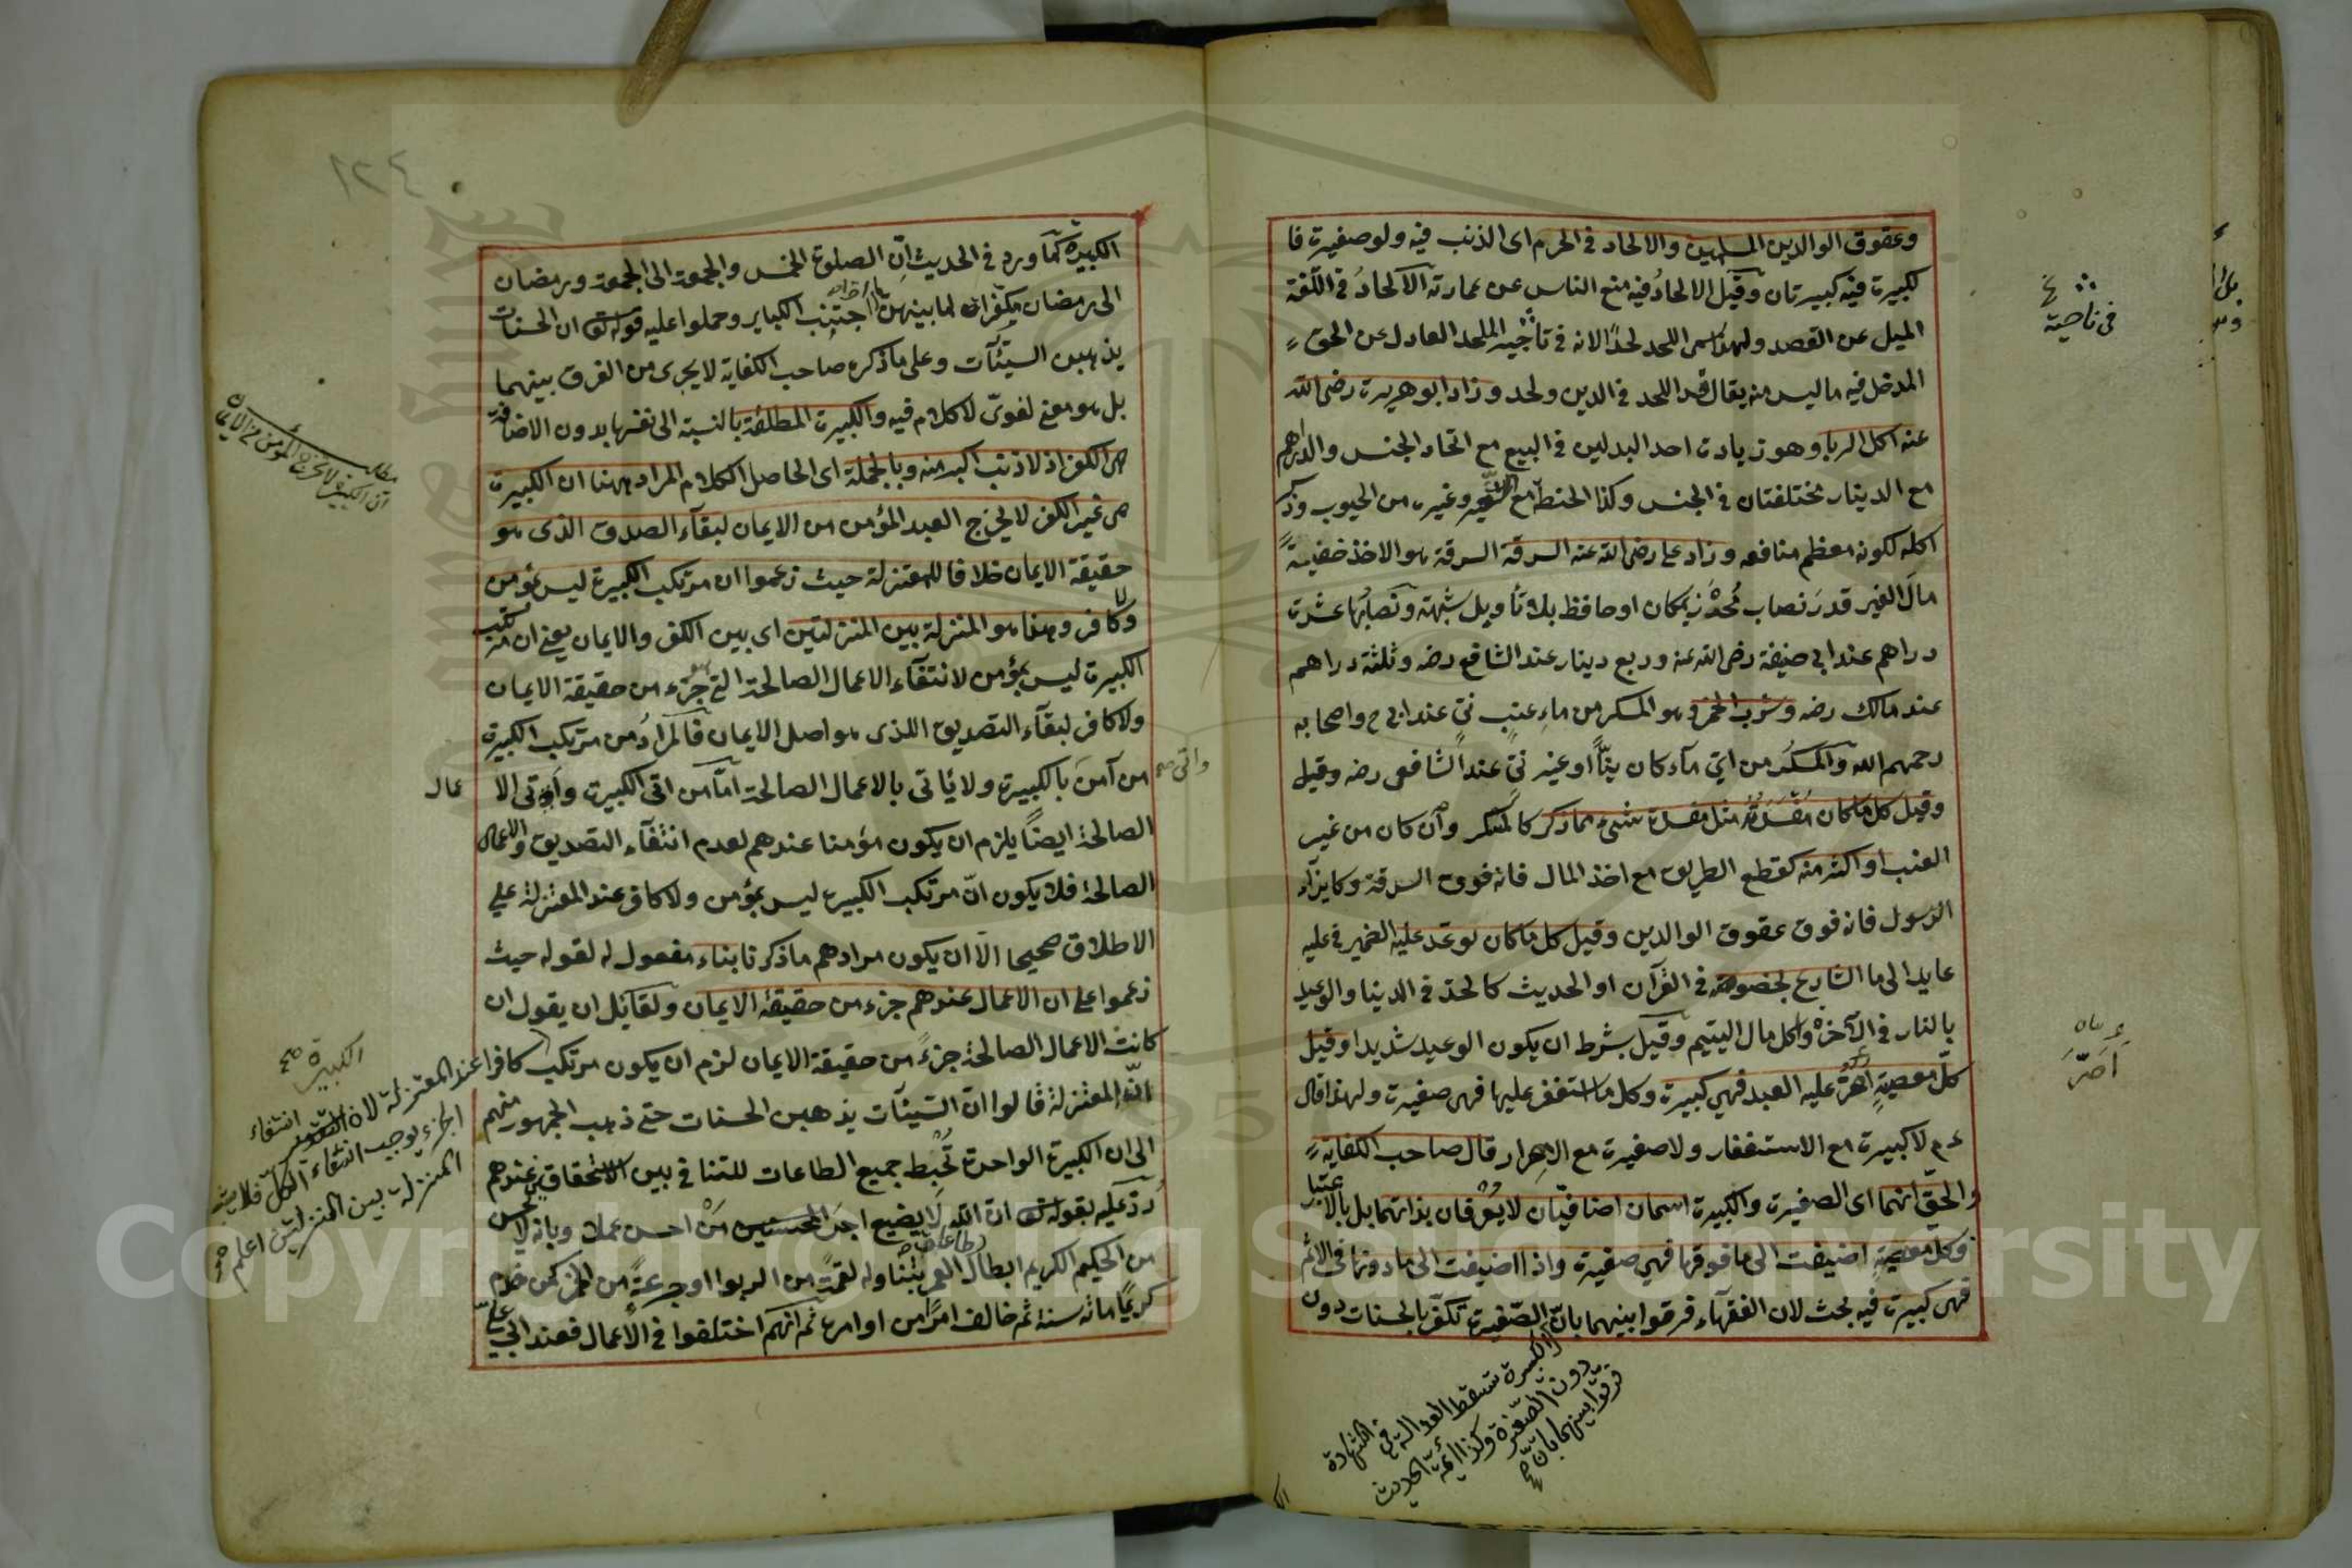 وعقوق الوالدين المسلمين والالحاد في الحرم اى الذنب فيه ولو صغيرة فا
لكبيرة فيه كبيرتان وقيل الالحاد فيه منع الناس عن عمارته الالحاد في اللغة
الميل عن القصد ولهذا سمى اللحد لحدا لانه في ناحية الملحد العادل عن الحق
المدخل فيه ما ليس منه يقال قد اللحد في الدين ولحد وزاد ابو هريرة رضى الله
عنه اكل الربا وهو زيادة احد البدلين في البيع مع اتحاد الجنس والدراهم
مع الدينار مختلفتان في الجنس وكذا الحنطة مع الشعير وغيره من الحبوب وذكر
اكله لكونه معظم منافعه وزاد على رضى الله عنه السرقة السرقة هو الاخذ خفية
مال الغير قدر نصاب محرز بمكان او حافظ بلا تأويل شبهة ونصابها عشرة
دراهم عند ابى حنيفة رضى الله عنه وربع دينار عند الشافع رضه وثلثة دراهم
عند مالك رضه وشرب الخمر وهو المسكر من ماء عنب نئ عند ابى ح واصحابه
رحمهم الله والمسكر من اي ماء كان نيّاً او غير نئ عند الشافعى رضه وقيل
وقيل كل ما كان مفسدته مثل مفسدة شىء مما ذكر كالمسكر وان كان من غير
العنب او اكثر منه كقطع الطريق مع اخذ المال فانه فوق السرقة وكايذاء
الرسول فانه فوق عقوق الوالدين وقيل كل ما كان توعد عليه الضمير في عليه
عايد الى ما الشارع بخصوصه في القرآن او الحديث كالحد في الدنيا والوعيد
بالنار في الآخرة واكل مال اليتيم وقيل بشرط ان يكون الوعيد شديدا وقيل
كل معصية اصرّ عليه العبد فهي كبيرة وكل ما استغفر عليها فهى صغيرة ولهذا قال
ءم لا كبيرة مع الاستغفار ولا صغيرة مع الاصرار قال صاحب الكفاية
والحق انهما اى الصغيرة والكبيرة اسمان اضافيان لا يعرفان بذاتهما بل بالاعتبار
وكل معصية اضيفت الى ما فوقها فهي صغيرة واذا اضيفت الى ما دونها في الاثم
فهى كبيرة فيه بحث لان الفقهاء فرقوا بينهما بان الصغيرة تكفر بالحسنات دون
الكبيرة تسقط العدالة في الشهادة
دون الصغيرة وكذا ائمة الحديث
فرقوا بينهما بان صح
في ناحية
اصرّ
١٢٤
الكبيرة كما ورد في الحديث ان الصلوة الخمس والجمعة الى الجمعة ورمضان
الى رمضان مكفرات لما بينهن اذا اجتنب الكباير وحملوا عليه قوله تع ان الحسنات
يذهبن السيئات وعلى ما ذكره صاحب الكفاية لا يجرى من الفرق بينهما
بل هو معنى لغوى لا كلام فيه والكبيرة المطلقة بالنسبة الى نفسها بدون الاضافة
هى الكفر اذ لا ذنب اكبر منه وبالجملة اى الحاصل الكلام المراد ههنا ان الكبيرة
هى غير الكفر لا يخرج العبد المؤمن من الايمان لبقاء الصدق الذى هو
حقيقة الايمان خلافا للمعتزلة حيث زعموا ان مرتكب الكبيرة ليس بمؤمن
ولا كافر وهذا هو المنزلة بين المنزلتين اى بين الكفر والايمان يعنى ان مرتكب
الكبيرة ليس بمؤمن لانتفاء الاعمال الصالحة التى هو جزء من حقيقة الايمان
ولا كافر لبقاء التصديق اللذى هو اصل الايمان فالمراد من مرتكب الكبيرة
من آمن بالكبيرة ولا يأتى بالاعمال الصالحة امّا من اتى الكبيرة واتى الا عمال
الصالحة ايضاً يلزم ان يكون مؤمنا عندهم لعدم انتفاء التصديق والاعمال
الصالحة فلا يكون ان مرتكب الكبيرة ليس بمؤمن ولا كافر عند المعتزلة على
الاطلاق صحيحا الا ان يكون مرادهم ما ذكرنا بناء مفعول له لقوله حيث
زعموا على ان الاعمال عندهم جزء من حقيقة الايمان ولقائل ان يقول ان
كانت الاعمال الصالحة جزءً من حقيقة الايمان لزم ان يكون مرتكب كافرا عند المعتزلة لان انتفاء
الجزء يوجب انتفاء الكل فلا
المنزلة بين المنزلتين اعلم
ان المعتزلة قالوا ان السيئات يذهبن الحسنات حتى ذهب الجمهور منهم
الى ان الكبيرة الواحدة تحبط جميع الطاعات للتنافى بين الاستحقاقين عندهم
ردّ عليه بقوله تع ان الله لا يضيع اجر المحسنين من احسن عملا وبانه لا يحسن
من الحكيم الكريم ابطال طاعات العمر بتناوله لقمة من الربوا او جرعةً من الخمر كمن خدم
كريما مائة سنة ثم خالف امرا من اوامره ثم انهم اختلفوا في الاعمال فعند ابى على
مطلب
ان الكبيرة لا يخرج المؤمن من الايمان
الكبيرة صح
واتى صح
Copyright © King Saud University
1957